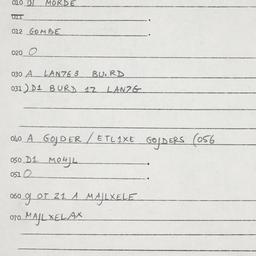 010 DI MORDE
011
012 GOMBE
020 O
030 A LAN763 BU.RD
031) D1 BURD 12 LAN7G
040 A GOJDER / ETL1XE GOJDERS (056
050 D1 MO4JL
051 O
060 g OT Z1 A MAJLXELE
070 MAJLXELAX